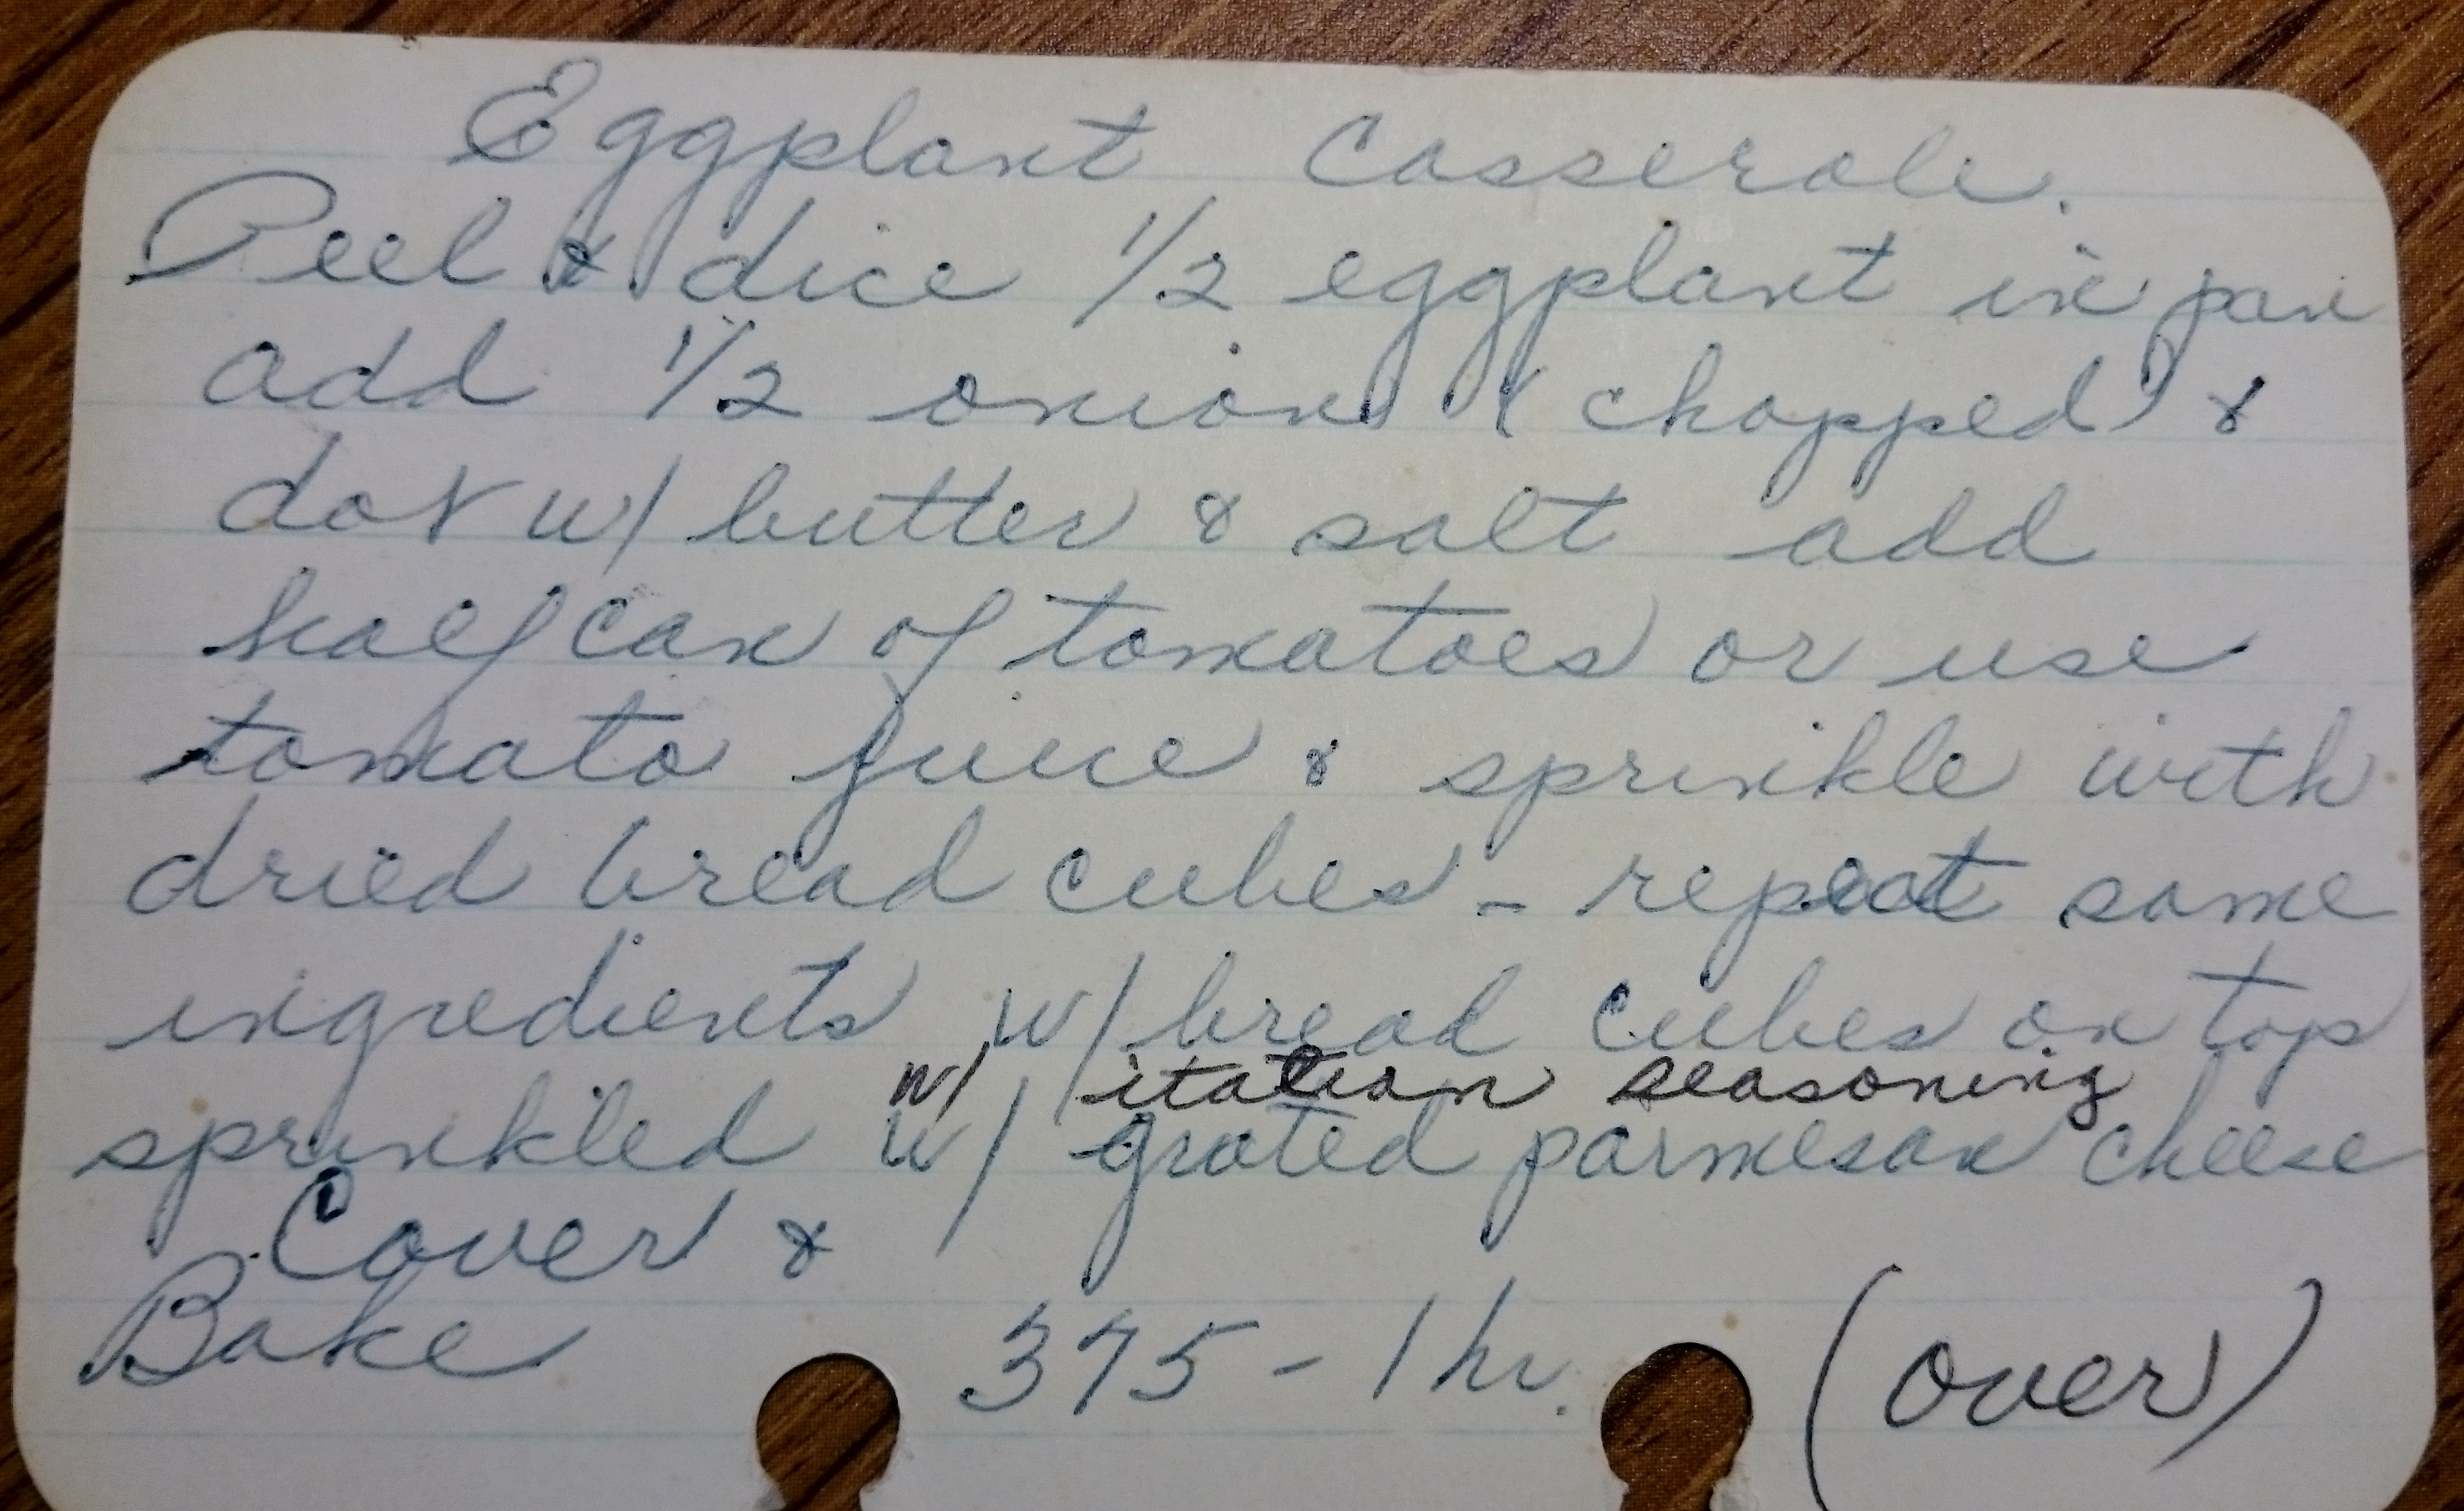 Eggplant Casserole.
Peel & dice 1/2 eggplant in pan
add 1/2 onion (chopped) &
dot w/ butter & salt add
half can of tomatoes or use
tomato juice & sprinkle with
dried bread cubes - repeat same
ingredients w/ bread cubes on top
w/ italian seasoning
sprinkled w/ grated parmesan cheese
Cover &
Bake 375 - 1 hr. (over)